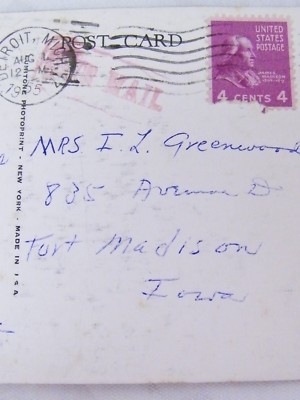 DETROIT, MICH.
AUG
12
PM
1955
POST CARD
AIR MAIL
UNITED STATES
POSTAGE
JAMES MADISON
4 CENTS 4
MRS I. L. Greenwood
835 Avenue D
Fort Madison
Iowa
PHOTOPRINT - NEW YORK - MADE IN USA